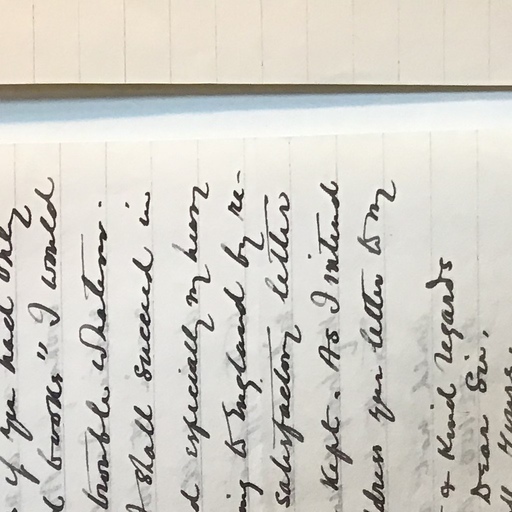 if you had only
books" I would
trouble whatever.
I shall succeed in
especially my heavy
ing to England by re-
satisfactory letter
Kept. As I intend
ddress your letter to my
& Kind regards
Dear Sir,
Yours.